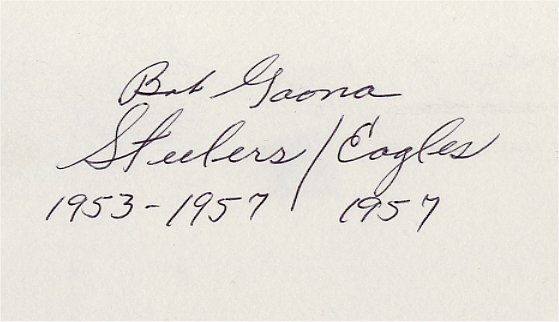 Bob Gaona
Steelers / Eagles
1953 - 1957 / 1957